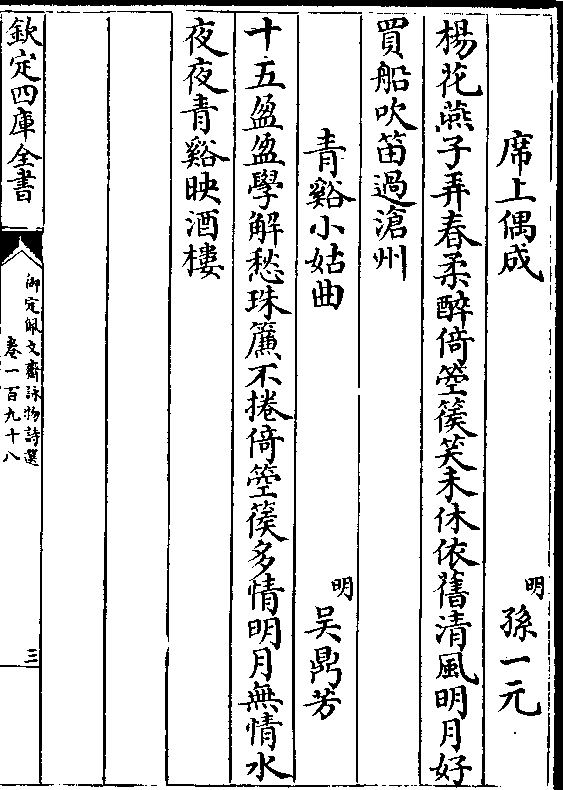 席上偶成
明 孫一元
楊花燕子弄春柔醉倚箜篌笑未休依舊清風明月好
買船吹笛過滄州
青谿小姑曲
明 吴鼎芳
十五盈盈學解愁珠簾不捲倚箜篌多情明月無情水
夜夜青谿映酒樓
欽定四庫全書
御定佩文齋詠物詩選
卷一百九十八
三